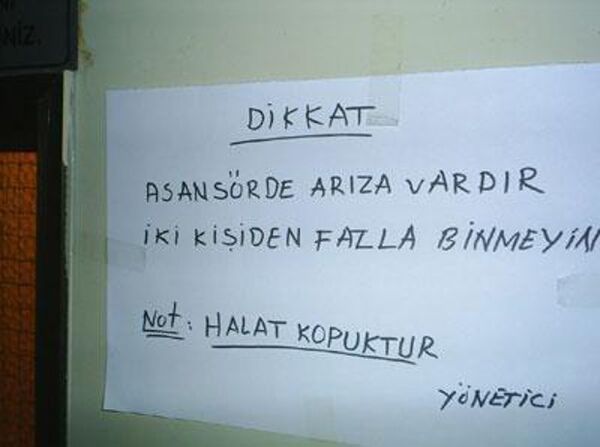 NİZ.
DİKKAT
ASANSÖRDE ARIZA VARDIR
İKİ KİŞİDEN FAZLA BİNMEYİN
Not: HALAT KOPUKTUR
YÖNETİCİ